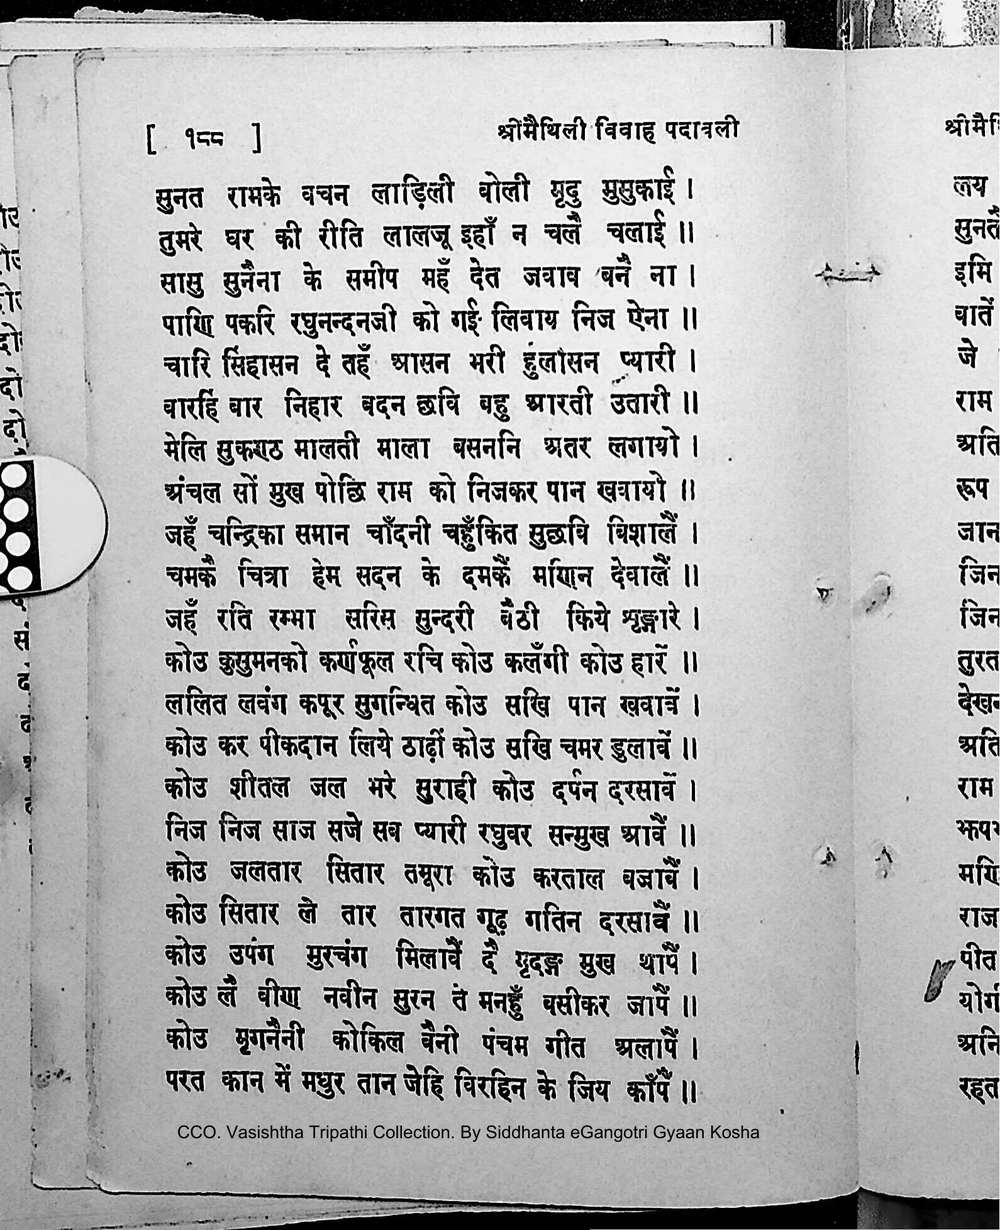 [ १८८ ] श्रीमैथिली विवाह पदावली
सुनत रामके वचन लाड़िली बोली मृदु मुसुकाई ।
तुमरे घर की रीति लालजू इहाँ न चलै चलाई ॥
सासु सुनैना के समीप महँ देत जवाव बनै ना ।
पाणि पकरि रघुनन्दनजी को गई लिवाय निज ऐना ॥
चारि सिंहासन दे तहँ आसन भरी हुलासन प्यारी ।
वारहिं बार निहार बदन छवि बहु आरती उतारी ॥
मेलि सुकण्ठ मालती माला बसननि अतर लगायो ।
अंचल सों मुख पोछि राम को निजकर पान खवायो ॥
जहँ चन्द्रिका समान चाँदनी चहुँकित सुछवि विशालैं ।
चमकै चित्रा हेम सदन के दमकैं मणिन देवालैं ॥
जहँ रति रम्भा सरिस सुन्दरी बैठी किये शृङ्गारे ।
कोउ कुसुमनको कर्णफूल रचि कोउ कलँगी कोउ हारें ॥
ललित लवंग कपूर सुगन्धित कोउ सखि पान खवावें ।
कोउ कर पीकदान लिये ठाढ़ीं कोउ सखि चमर डुलावें ॥
कोउ शीतल जल भरे सुराही कोउ दर्पन दरसावें ।
निज निज साज सजे सब प्यारी रघुवर सन्मुख आवैं ॥
कोउ जलतार सितार तमूरा कोउ करताल बजावैं ।
कोउ सितार ले तार तारगत गूढ़ गतिन दरसावैं ॥
कोउ उपंग मुरचंग मिलावैं दै मृदङ्ग मुख थापैं ।
कोउ लै वीण नवीन सुरन ते मनहुँ बसीकर जापैं ॥
कोउ मृगनैनी कोकिल बैनी पंचम गीत अलापैं ।
परत कान में मधुर तान जेहि विरहिन के जिय काँपैं ॥
CCO. Vasishtha Tripathi Collection. By Siddhanta eGangotri Gyaan Kosha
श्रीमै
लय
सुनतै
इमि
बातें
जे
राम
अति
रूप
जान
जिन
जिन
तुरत
देखन
अति
राम
मणि
राज
पीत
योगी
अनि
रहत